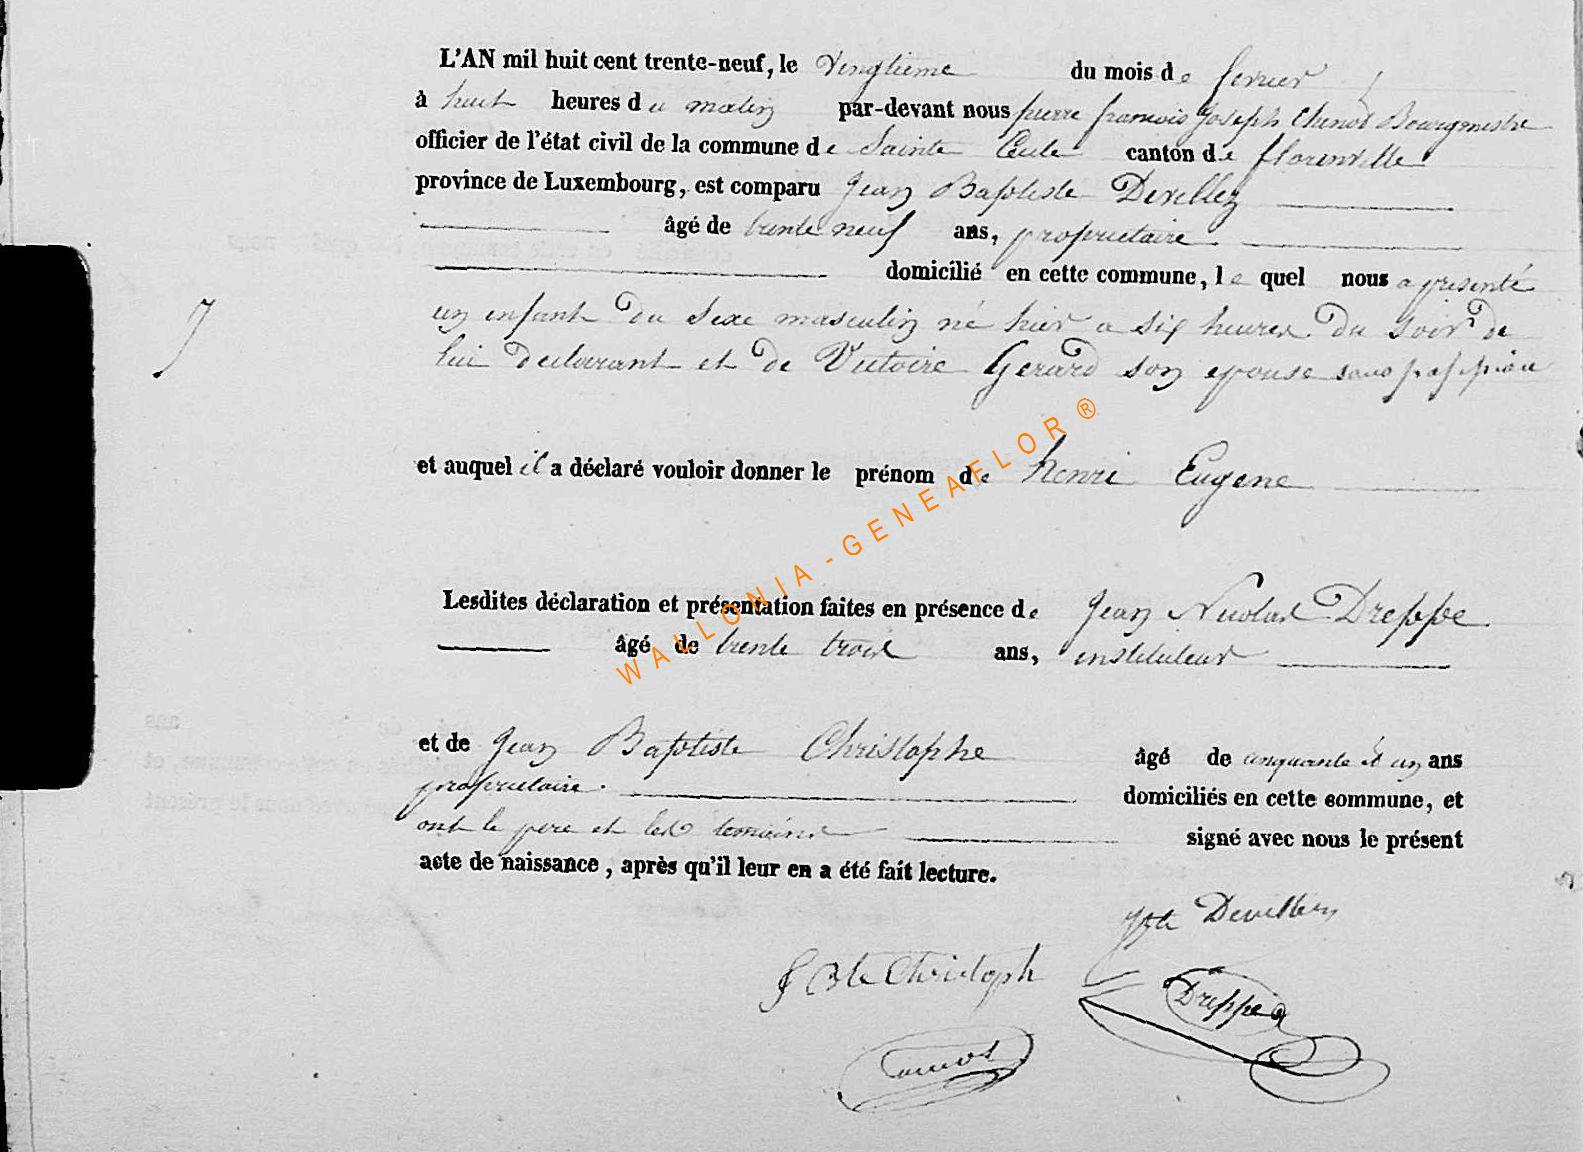 L'AN mil huit cent trente-neuf, le vingtieme du mois de fevrier
à huit heures du matin par-devant nous pierre francois Joseph Chenot Bourgmestre
officier de l'état civil de la commune de Sainte Cecile canton de florenville
province de Luxembourg, est comparu Jean Baptiste Devillez
âgé de trente neuf ans, proprietaire
domicilié en cette commune, le quel nous a presenté
un enfant du Sexe masculin né hier a six heures du soir de
lui declarant et de Victoire Gerard son epouse sans profession
et auquel il a déclaré vouloir donner le prénom de henri Eugene
WALLONIA-GENEAFLOR®
Lesdites déclaration et présentation faites en présence de Jean Nicolas Dreppe
âgé de trente trois ans, instituteur
et de Jean Baptiste Christophe âgé de cinquante et un ans
proprietaire. domiciliés en cette commune, et
ont le pere et les temoins signé avec nous le présent
acte de naissance, après qu'il leur en a été fait lecture.
Devillez
J Bte Christoph
Dreppe